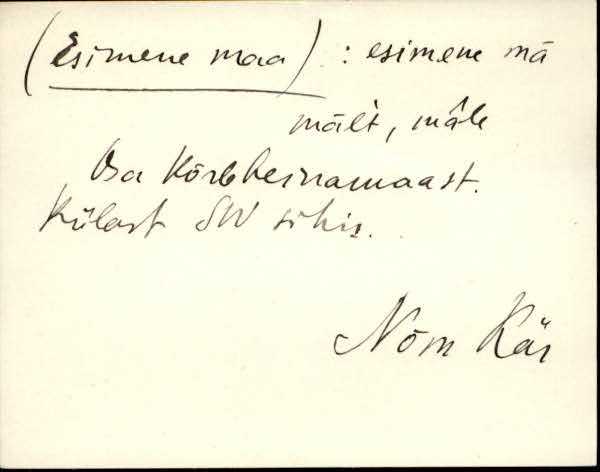 (Esimene maa) : esimene mā
mālt, mâle
Osa Kõrbheinamaast.
Külast SW sihis.
Nõm Kär